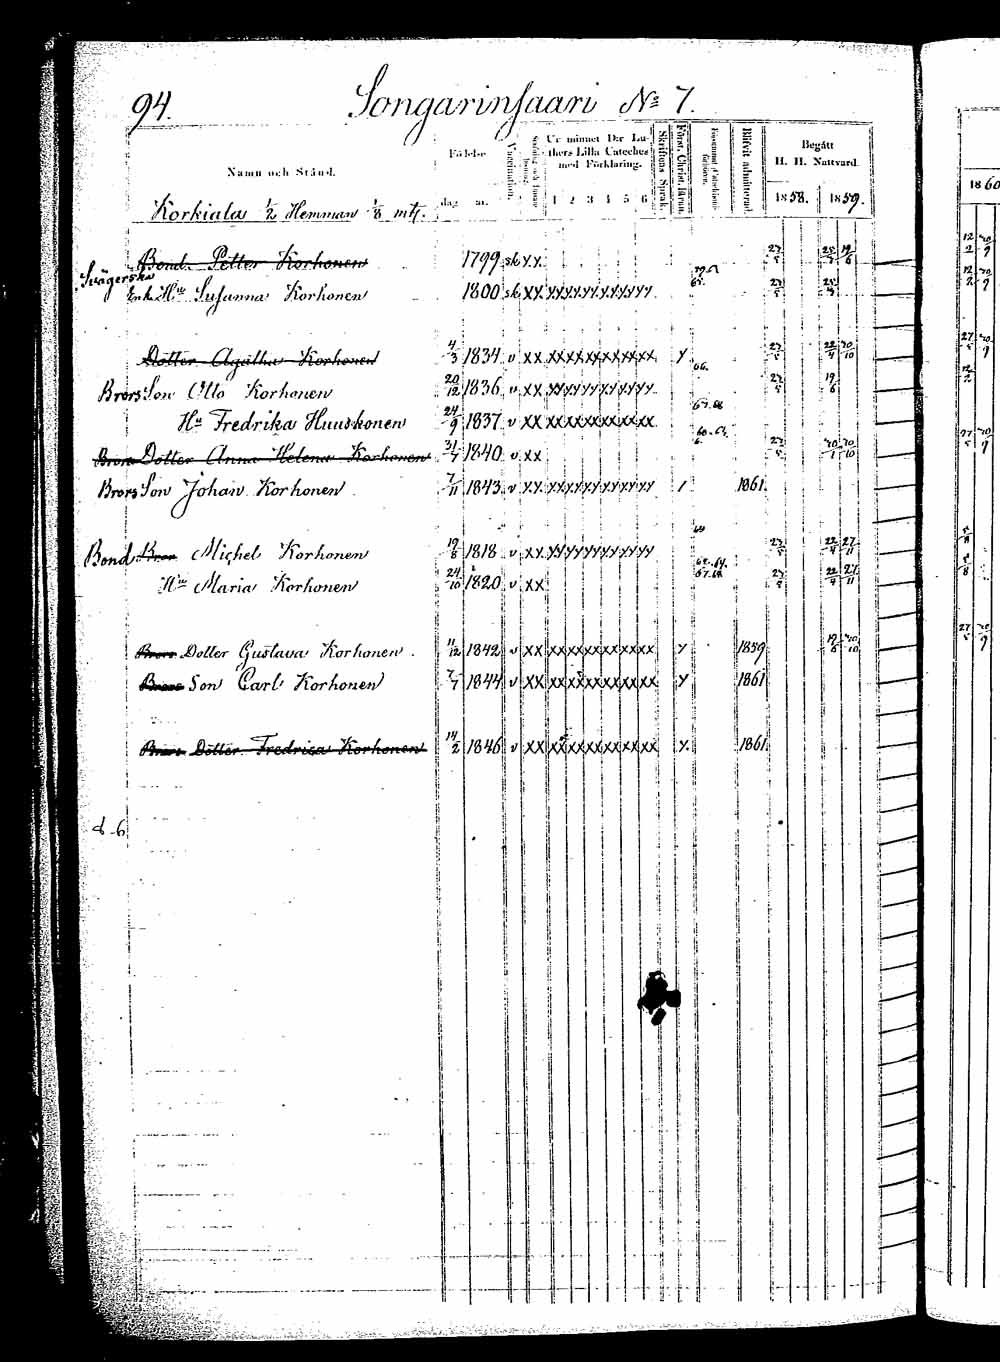 94. Songarinsaari No 7.
Namn och Stånd.
Födelse
dag
år.
Vaccination.
Ur minnet D:r Lu-
thers Lilla Cateches
med Förklaring.
1 2 3 4 5 6
Skriftens Språk.
Först. Christ. lärun.
Blifvit admitterad.
Begått
H. H. Nattvard.
1858. 1859.
1860
Korkiala 1/2 Hemman 1/8 mtl.
Bond. Petter Korhonen 1799 sk x x 27/5 25/3 19/6
Svägerska
Enka Hu Susanna Korhonen 1800 sk x x x x x x x x x x x x x 65. 27/5 25/3
Dotter Agatha Korhonen 4/3 1834 v x x x x x x x x x x x x x x 66. 27/5 22/4 30/10
Brors Son Otto Korhonen 20/12 1836 v x x x x x x x x x x x x x 27/5 19/6
Hu Fredrika Huuskonen 24/9 1837 v x x x x x x x x x x x x x
Brors Dotter Anna Helena Korhonen 31/7 1840 v x x 27/5
Brors Son Johan Korhonen 7/11 1843 v x x x x x x x x x x x x x 1 1861.
Bond. Bror Michel Korhonen 19/8 1818 v x x x x x x x x x x x x x 27/5 22/4 27/11
Hu Maria Korhonen 24/10 1820 v x x 27/5 22/4 27/11
Brors Dotter Gustava Korhonen. 11/12 1842 v x x x x x x x x x x x x x x 1859 19/6
Brors Son Carl Korhonen 7/7 1844 v x x x x x x x x x x x x x x 1861
Brors Dotter Fredrica Korhonen 14/2 1846 v x x x x x x x x x x x x x x 1861.